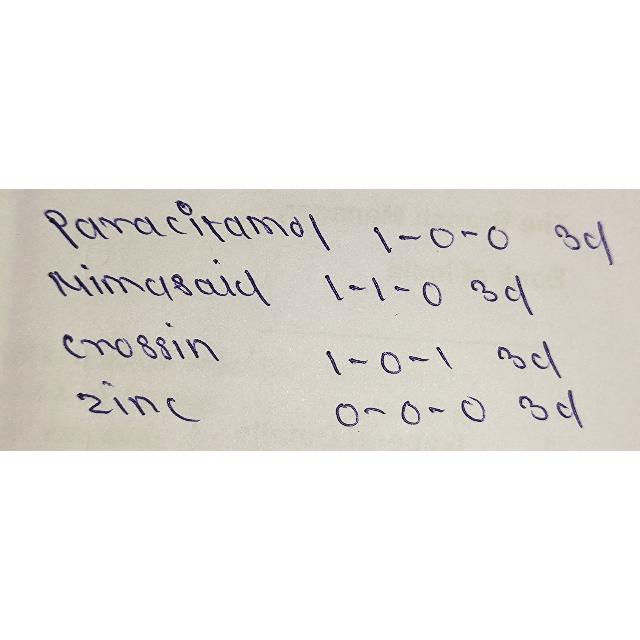 Paracitamol 1-0-0 3d
Nimasaid 1-1-0 3d
crossin 1-0-1 3d
zinc 0-0-0 3d